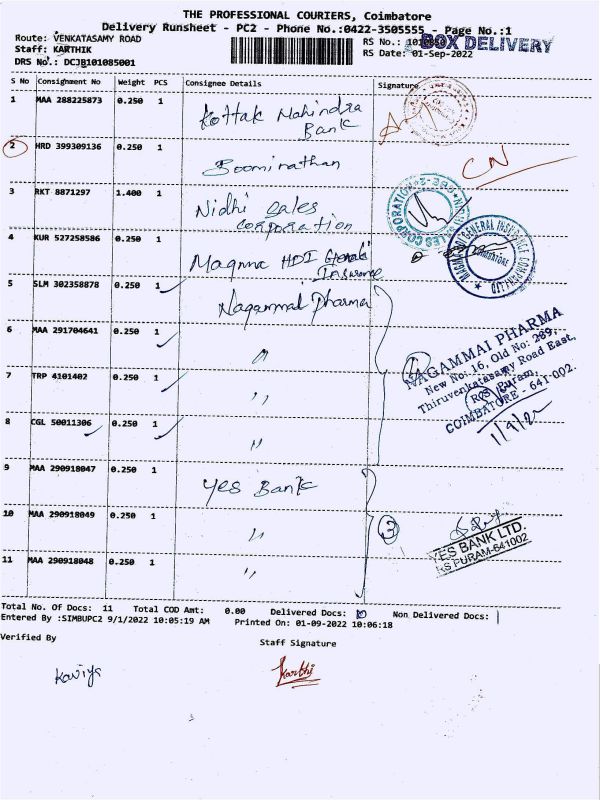 THE PROFESSIONAL COURIERS, Coimbatore
Delivery Runsheet - PC2 - Phone No.:0422-3505555 - Page No.:1
Route: VENKATASAMY ROAD
RS No.:
BOX DELIVERY
Staff: KARTHIK
RS Date: 01-Sep-2022
DRS No.: DCJB101085001
S No Consignment No Weight PCS Consignee Details Signature
1 MAA 288225873 0.250 1 Kottak Mahindra Bank
2 HRD 399309136 0.250 1 Boominathan CN
3 RKT 8871297 1.400 1 Nidhi Sales Corporation
4 KUR 527258586 0.250 1 Magma HDI General Insurance
5 SLM 302358878 0.250 1 Nagammal Pharma
6 MAA 291704641 0.250 1 "
7 TRP 4101402 0.250 1 "
8 CGL 50011306 0.250 1 "
NAGAMMAI PHARMA
New No: 16, Old No: 289,
Thiruvenkatasamy Road East,
R.S. Puram,
COIMBATORE - 641-002.
1/9/22
9 MAA 290918047 0.250 1 Yes Bank
10 MAA 290918049 0.250 1 "
11 MAA 290918048 0.250 1 "
3
YES BANK LTD.
RS PURAM-641002
Total No. Of Docs: 11 Total COD Amt: 0.00 Delivered Docs: Non Delivered Docs:
Entered By :SIMBUPC2 9/1/2022 10:05:19 AM Printed On: 01-09-2022 10:06:18
Verified By
Staff Signature
Kaviya
Karthi